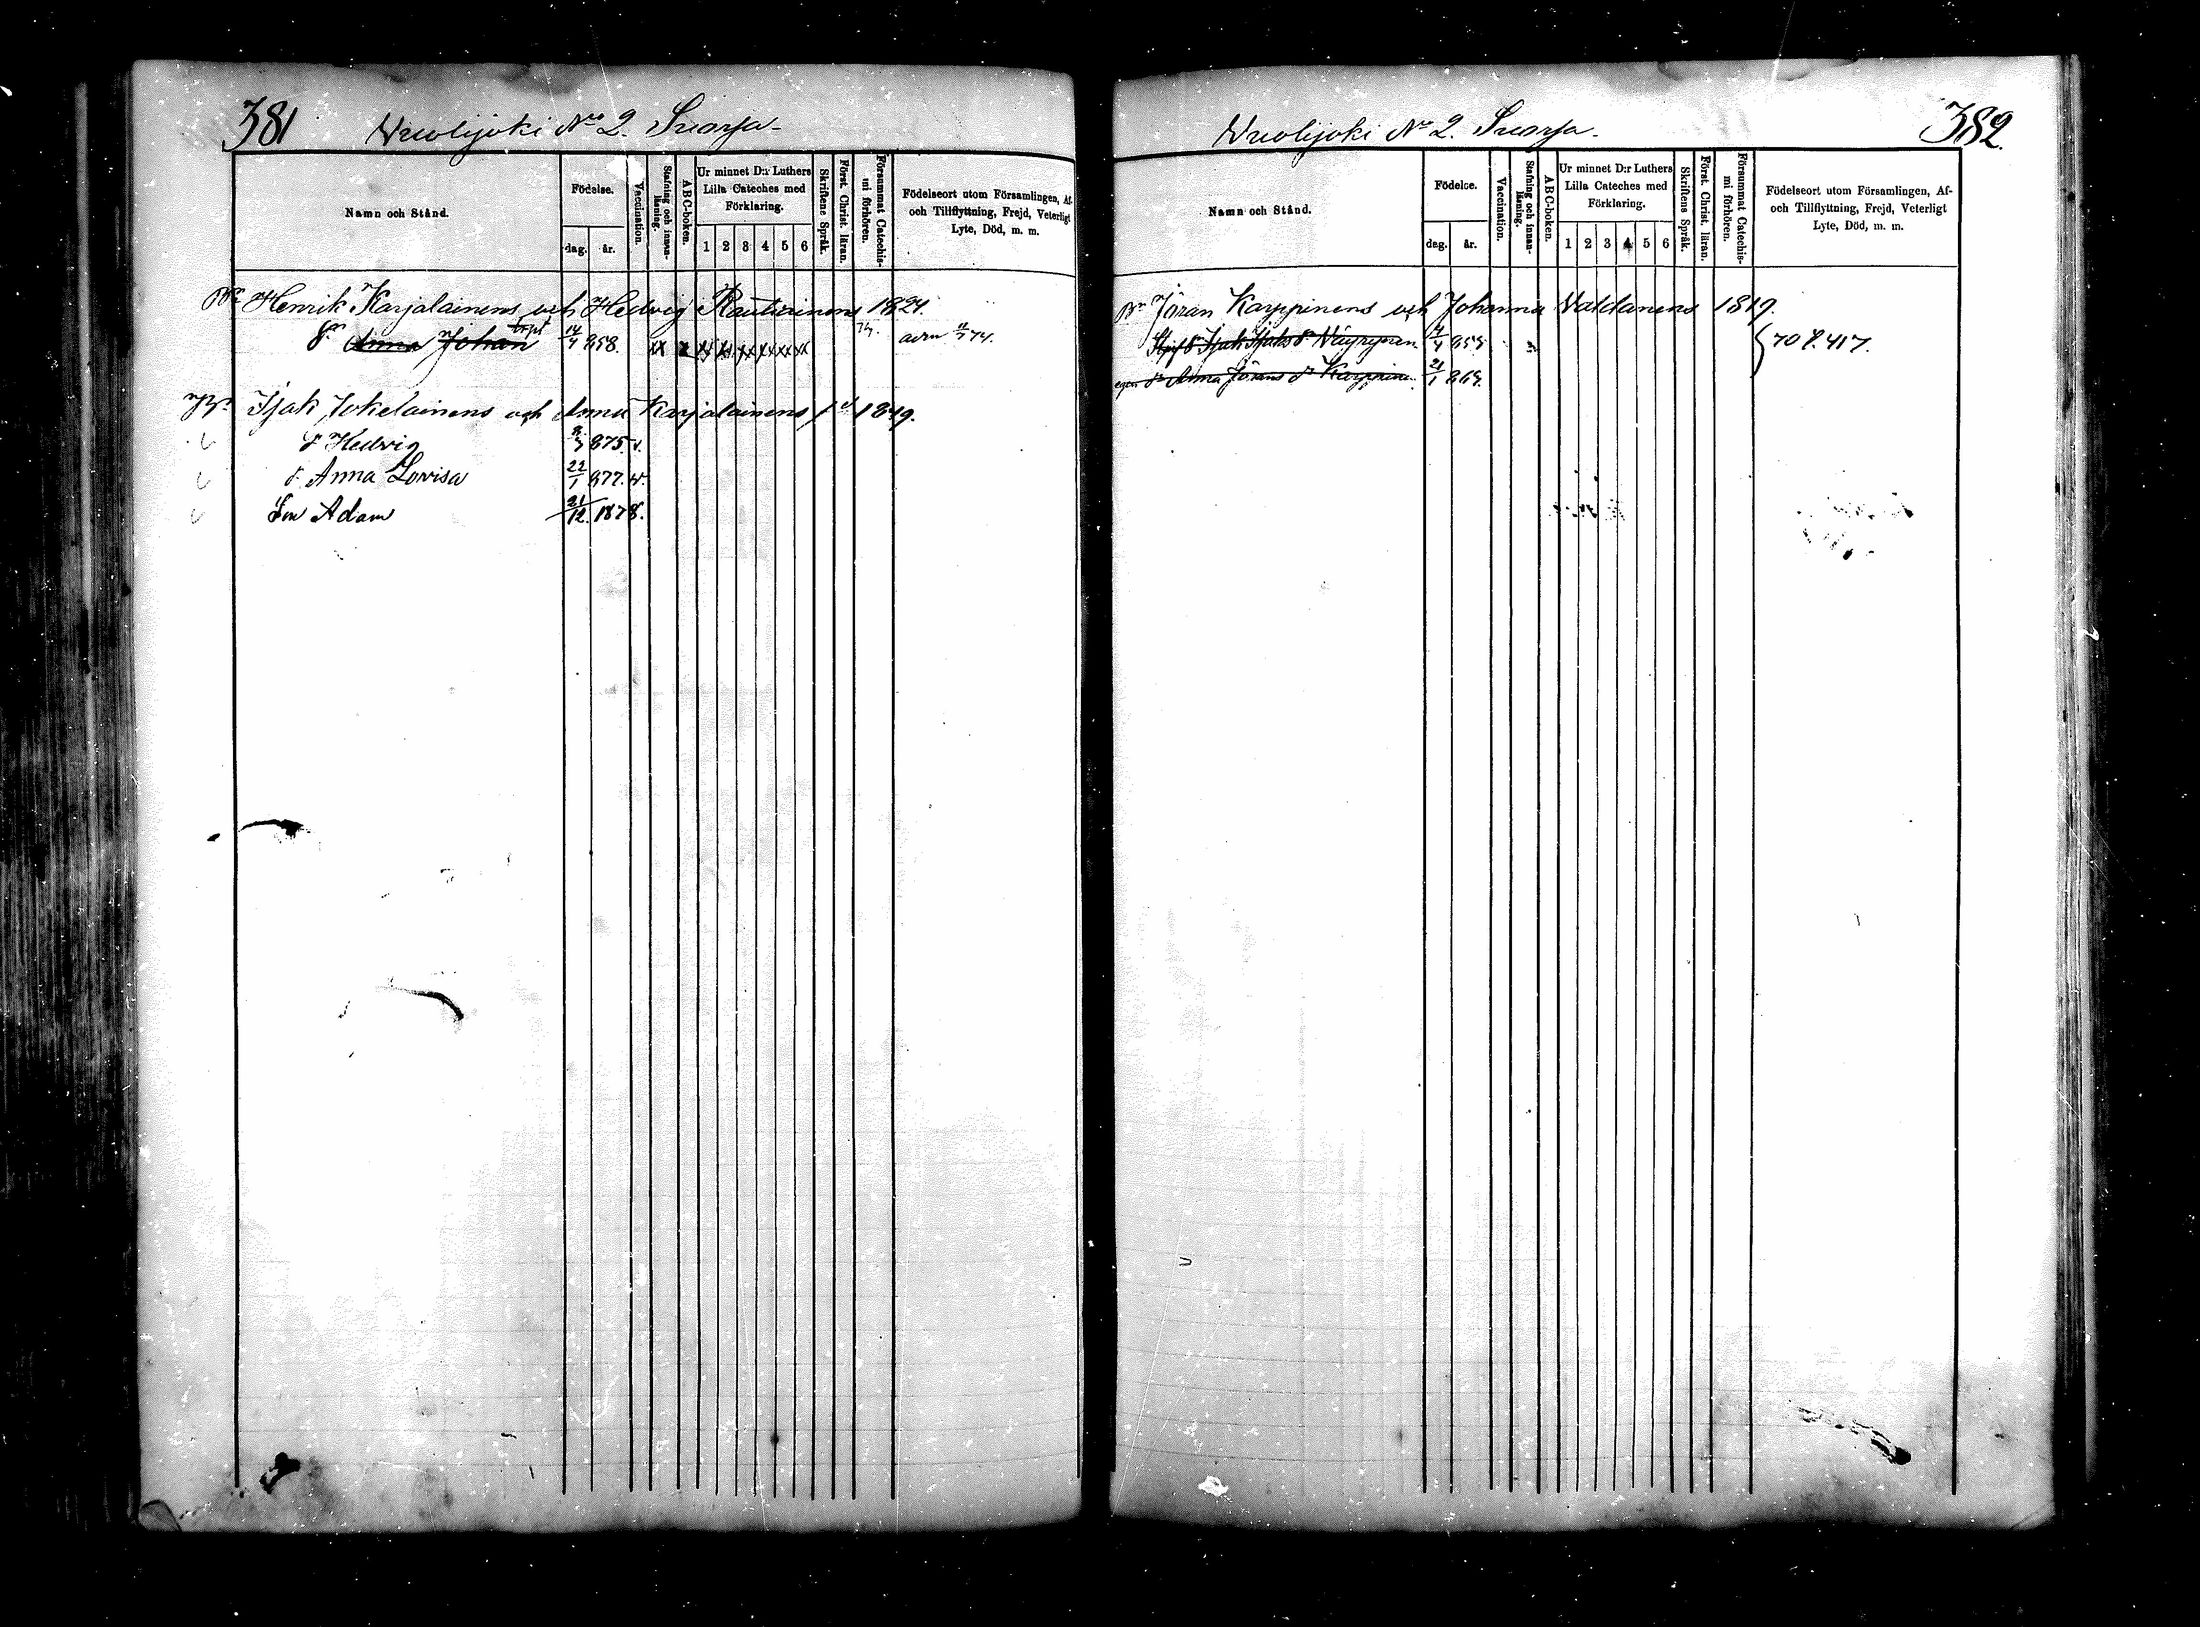 381 Vuolijoki No 2. Suarja.
Namn och Stånd.
Födelse.
dag. år.
Vaccination.
Stafning och innanläsning.
ABC-boken.
Ur minnet D:r Luthers
Lilla Cateches med
Förklaring.
1 2 3 4 5 6
Skriftens Språk.
Först. Christ. läran.
Försummat Catechismi förhören.
Födelseort utom Församlingen, Af-
och Tillflyttning, Frejd, Veterligt
Lyte, Död, m. m.
Henrik Karjalainens och Hedvig Rautiainens 1824.
Anna Johan 14/7 858. xx x xx xx xx xx xx xx 74.
Isak Jokelainens och Anna Karjalainens 1849.
d Hedvig 875. v.
d. Anna Lovisa 22/1 877. v.
Son Adam 21/12. 1878.
Vuolijoki No 2. Suarja. 382
Namn och Stånd.
Födelse.
dag. år.
Vaccination.
Stafning och innanläsning.
ABC-boken.
Ur minnet D:r Luthers
Lilla Cateches med
Förklaring.
1 2 3 4 5 6
Skriftens Språk.
Först. Christ. läran.
Försummat Catechismi förhören.
Födelseort utom Församlingen, Af-
och Tillflyttning, Frejd, Veterligt
Lyte, Död, m. m.
Göran Karppinens och Johanna Valdanens 1819.
Isak Isaks Näyrynen 70 417.
Anna Görans dr Karppinen 21/1